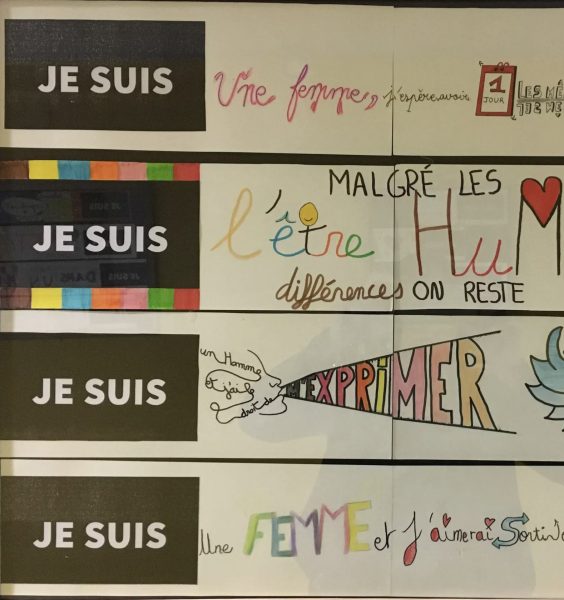 JE SUIS Une femme, j'espère avoir 1 JOUR LES MÊ
JE SUIS
MALGRÉ LES
l'être HuM
différences ON RESTE
JE SUIS
un Homme
et j'ai le
droit de
M'EXPRIMER
JE SUIS Une FEMME et J'aimerai Sortir